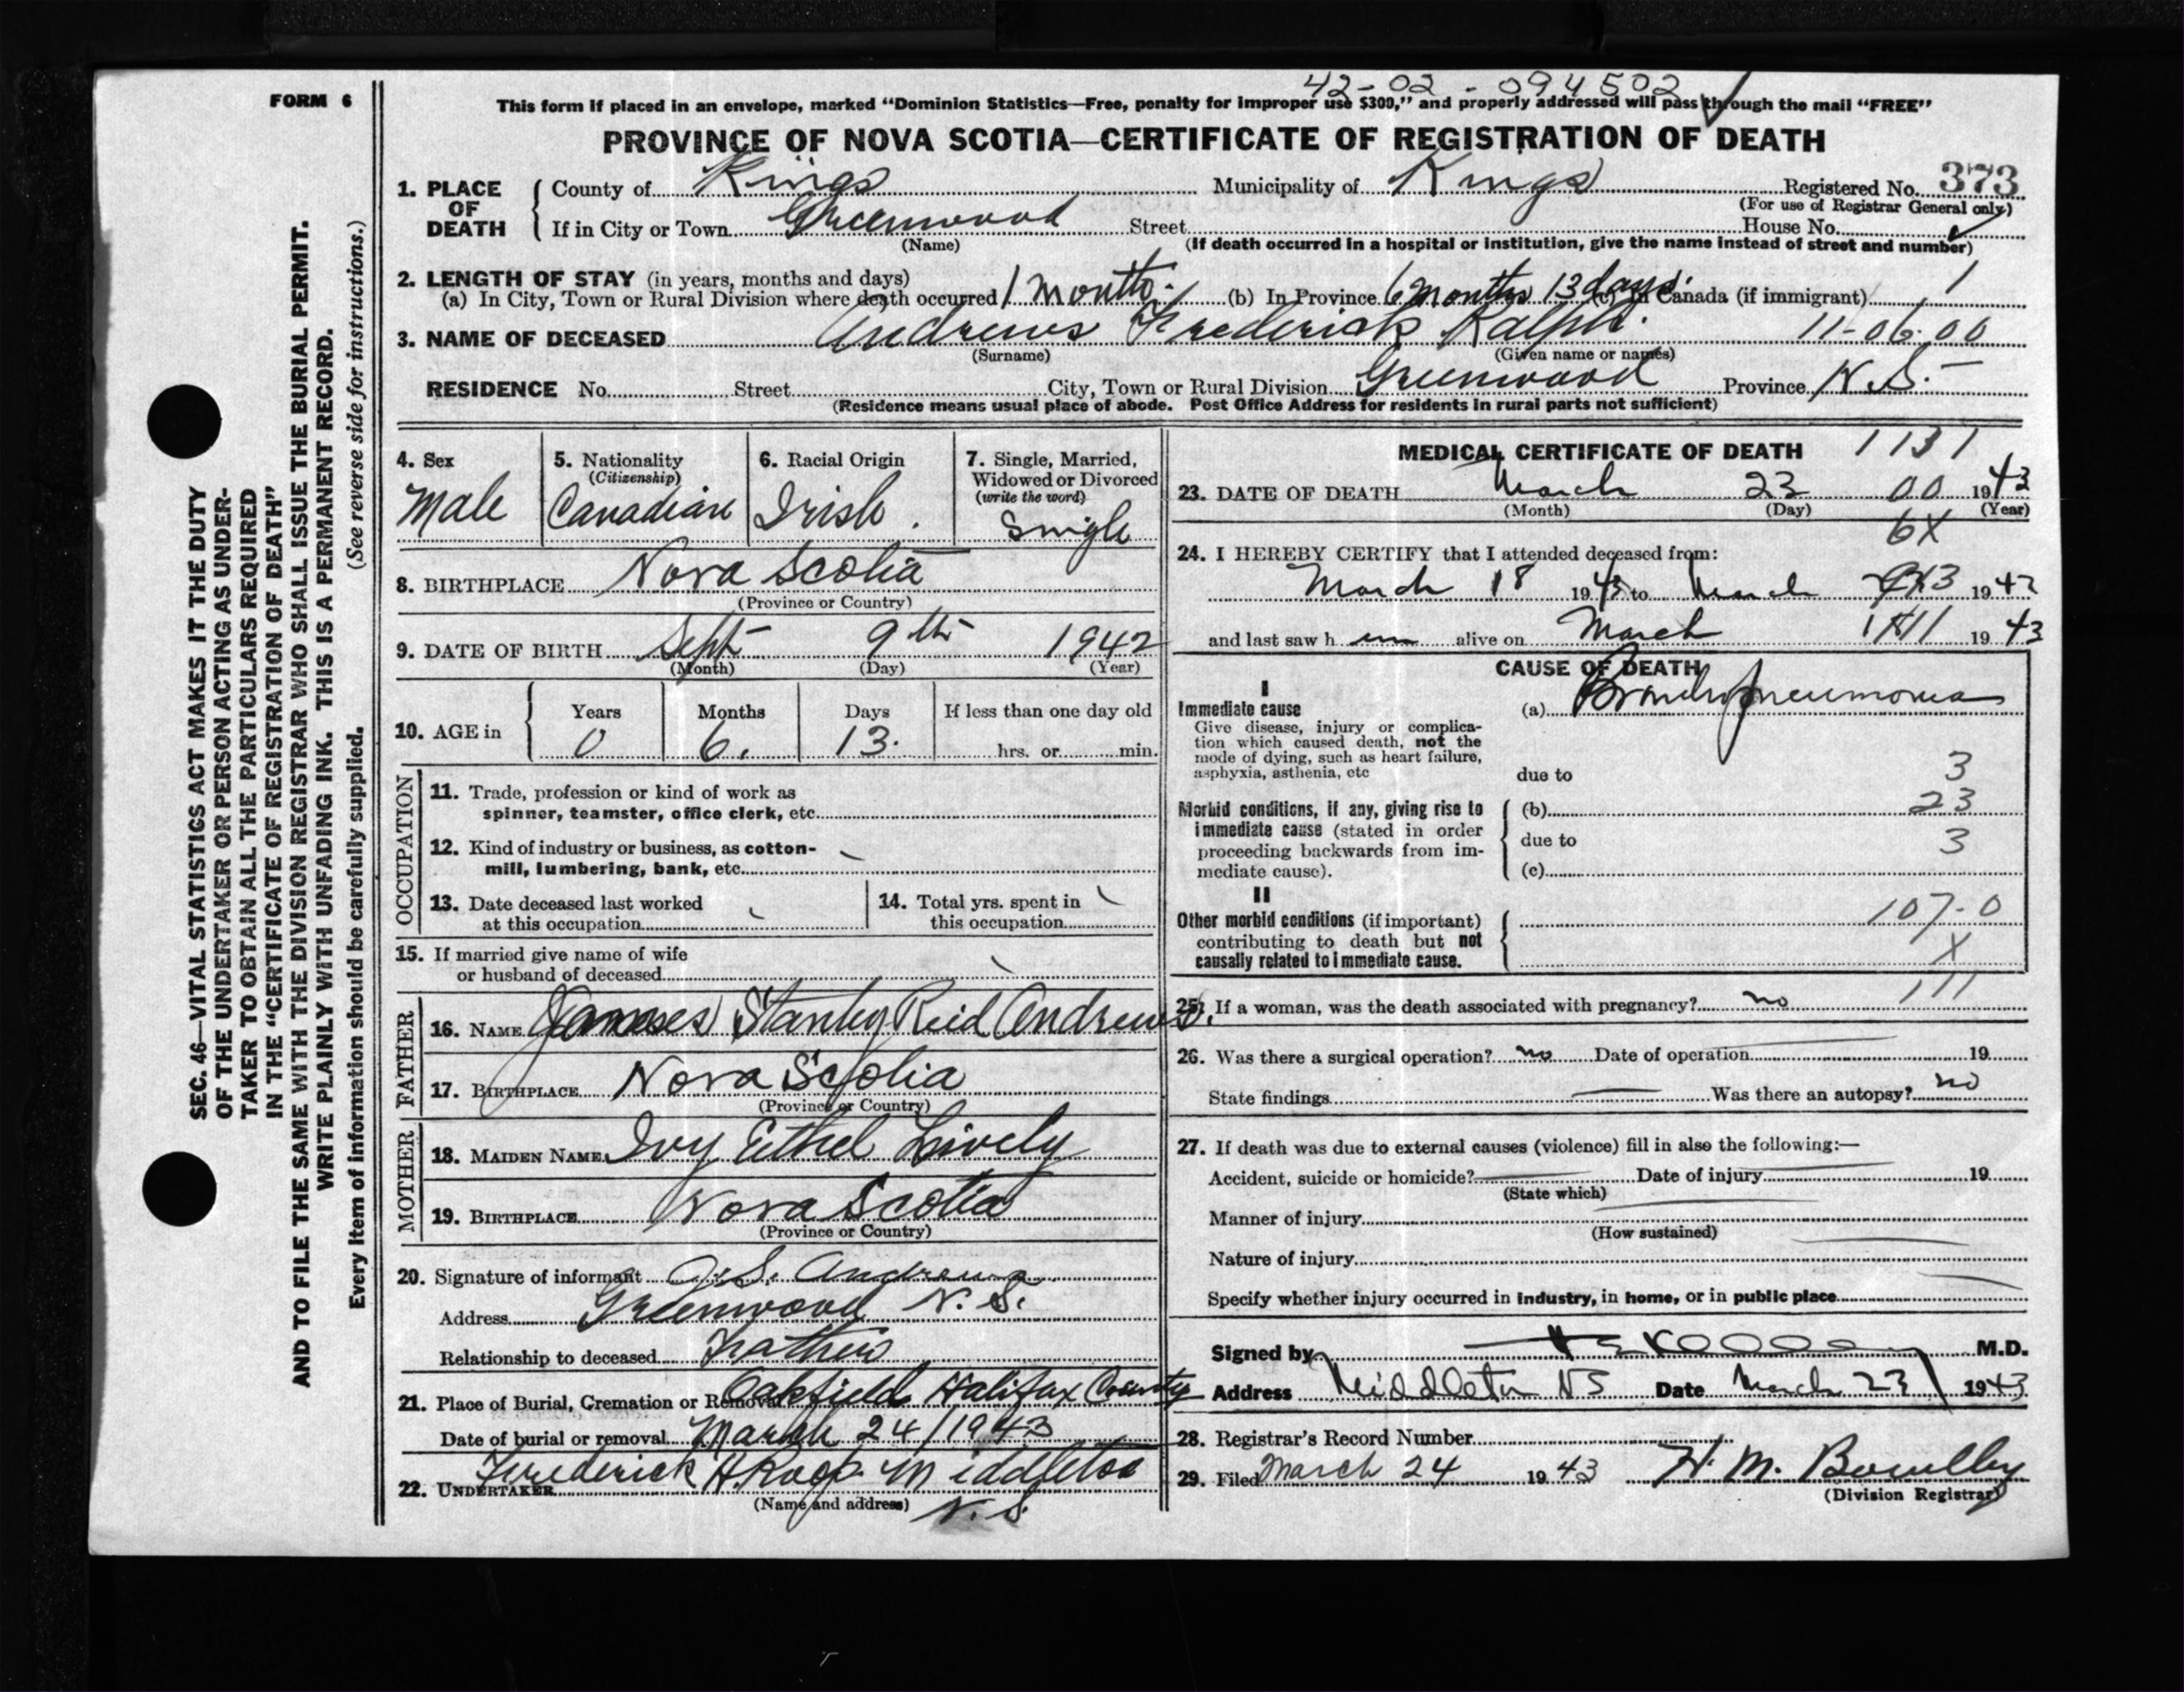 42-02-094502
FORM 6
This form if placed in an envelope, marked “Dominion Statistics—Free, penalty for improper use $300,” and properly addressed will pass through the mail “FREE”
PROVINCE OF NOVA SCOTIA—CERTIFICATE OF REGISTRATION OF DEATH
1. PLACE OF DEATH
County of Kings Municipality of Kings Registered No. 373
(For use of Registrar General only)
If in City or Town Greenwood Street House No.
(Name) (If death occurred in a hospital or institution, give the name instead of street and number)
2. LENGTH OF STAY (in years, months and days)
(a) In City, Town or Rural Division where death occurred 1 month. (b) In Province 6 months 13 days. (c) In Canada (if immigrant) 1
3. NAME OF DECEASED Andrews Frederick Ralph. 11-06.00
(Surname) (Given name or names)
RESIDENCE No. Street City, Town or Rural Division Greenwood Province N.S.
(Residence means usual place of abode. Post Office Address for residents in rural parts not sufficient)
4. Sex
Male
5. Nationality
(Citizenship)
Canadian
6. Racial Origin
Irish.
7. Single, Married,
Widowed or Divorced
(write the word)
Single
8. BIRTHPLACE Nova Scotia
(Province or Country)
9. DATE OF BIRTH Sept 9th 1942
(Month) (Day) (Year)
10. AGE in
Years Months Days If less than one day old
0 6. 13. hrs. or min.
OCCUPATION
11. Trade, profession or kind of work as
spinner, teamster, office clerk, etc.
12. Kind of industry or business, as cotton-
mill, lumbering, bank, etc.
13. Date deceased last worked
at this occupation
14. Total yrs. spent in
this occupation
15. If married give name of wife
or husband of deceased
FATHER
16. NAME James Stanley Reid Andrews.
17. BIRTHPLACE Nova Scotia
(Province or Country)
MOTHER
18. MAIDEN NAME Ivy Ethel Lively
19. BIRTHPLACE Nova Scotia
(Province or Country)
20. Signature of informant J.S. Andrews
Address Greenwood N.S.
Relationship to deceased Father
21. Place of Burial, Cremation or Removal Oakfield Halifax County
Date of burial or removal March 24/1943
22. UNDERTAKER Frederick H. Roop. Middleton
(Name and address) N.S.
MEDICAL CERTIFICATE OF DEATH 1131
23. DATE OF DEATH March 23 00 1943
(Month) (Day) (Year)
6X
24. I HEREBY CERTIFY that I attended deceased from:
March 18 1943 to March 1943
and last saw h im alive on March 1943
CAUSE OF DEATH
I
Immediate cause
Give disease, injury or complica-
tion which caused death, not the
mode of dying, such as heart failure,
asphyxia, asthenia, etc
(a) Bronchopneumonia
due to 3
Morbid conditions, if any, giving rise to
immediate cause (stated in order
proceeding backwards from im-
mediate cause).
(b) 23
due to 3
(c)
II
Other morbid conditions (if important)
contributing to death but not
causally related to immediate cause.
107-0
X
25. If a woman, was the death associated with pregnancy? no 111
26. Was there a surgical operation? no Date of operation 19
State findings Was there an autopsy? no
27. If death was due to external causes (violence) fill in also the following:—
Accident, suicide or homicide? Date of injury 19
(State which)
Manner of injury
(How sustained)
Nature of injury
Specify whether injury occurred in industry, in home, or in public place
Signed by M.D.
Address Middleton NS Date March 23 1943
28. Registrar's Record Number
29. Filed March 24 1943 H. M. Bowlby
(Division Registrar)
SEC. 46—VITAL STATISTICS ACT MAKES IT THE DUTY
OF THE UNDERTAKER OR PERSON ACTING AS UNDER-
TAKER TO OBTAIN ALL THE PARTICULARS REQUIRED
IN THE “CERTIFICATE OF REGISTRATION OF DEATH”
AND TO FILE THE SAME WITH THE DIVISION REGISTRAR WHO SHALL ISSUE THE BURIAL PERMIT.
WRITE PLAINLY WITH UNFADING INK. THIS IS A PERMANENT RECORD.
Every item of information should be carefully supplied. (See reverse side for instructions.)